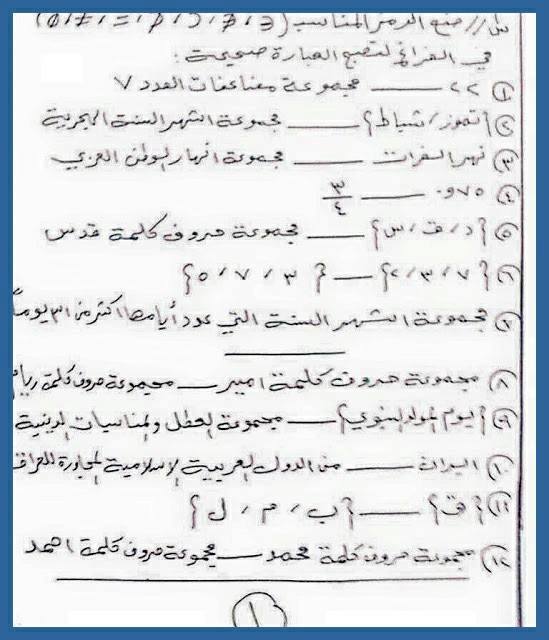 س// ضع الرمز المناسب (∋، ∌، ⊂، ⊄، =، ≠، Ø)
في الفراغ لتصبح العبارة صحيحة:
① ٢٢ ــــــ مجموعة مضاعفات العدد ٧
② {تموز، شباط} ــــــ مجموعة اشهر السنة الهجرية
③ نهر الفرات ــــــ مجموعة انهار الوطن العربي
④ ٠٧٥ ــــــ ٣/٤
⑤ {د، ق، س} ــــــ مجموعة حروف كلمة قدس
⑥ {٢، ٣، ٧} ــــــ {٣، ٧، ٥}
⑦ مجموعة اشهر السنة التي عدد أيامها اكثر من ٣١ يوماً
ــــــــــــ
⑧ مجموعة حروف كلمة امير ــــــ مجموعة حروف كلمة ريام
⑨ {يوم المولد النبوي} ــــــ مجموعة العطل والمناسبات الدينية
⑩ ايران ــــــ من الدول العربية الإسلامية المجاورة للعراق
⑪ {ق} ــــــ {ب، م، ل}
⑫ مجموعة حروف كلمة محمد ــــــ مجموعة حروف كلمة احمد
١